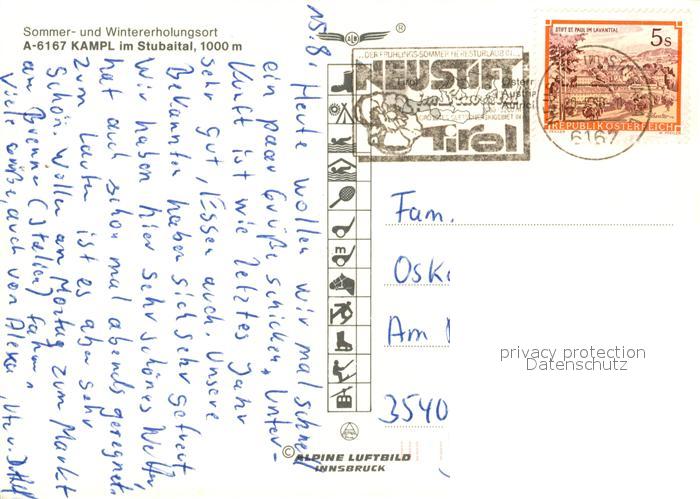 Sommer- und Wintererholungsort
A-6167 KAMPL im Stubaital, 1000 m
15.8.
Heute wollen wir mal schnell
ein paar Grüße schicken. Unter-
kunft ist wie letztes Jahr
sehr gut, Essen auch. Unsere
Bekannten haben sich sehr gefreut.
Wir haben hier sehr schönes Wetter,
hat auch schon mal abends geregnet.
Zum Laufen ist es aber sehr
schön. Wollen am Montag zum Markt
am Brenner (Italien) fahren.
Viele Grüße, auch von Alexa,
®
NEUSTIFT
Tirol
6167
STIFT ST. PAUL IM LAVANTTAL
5s
REPUBLIK ÖSTERREICH
Fam.
Osk
Am
3540
privacy protection
Datenschutz
© ALPINE LUFTBILD
INNSBRUCK